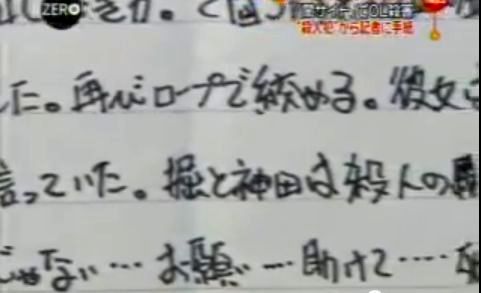 ZERO
闇サイトでOL殺害
"殺人犯"から記者に手紙
た。再びロープで絞める。彼女は
言っていた。堀と神田は殺人の
じゃない…お願い…助けて……